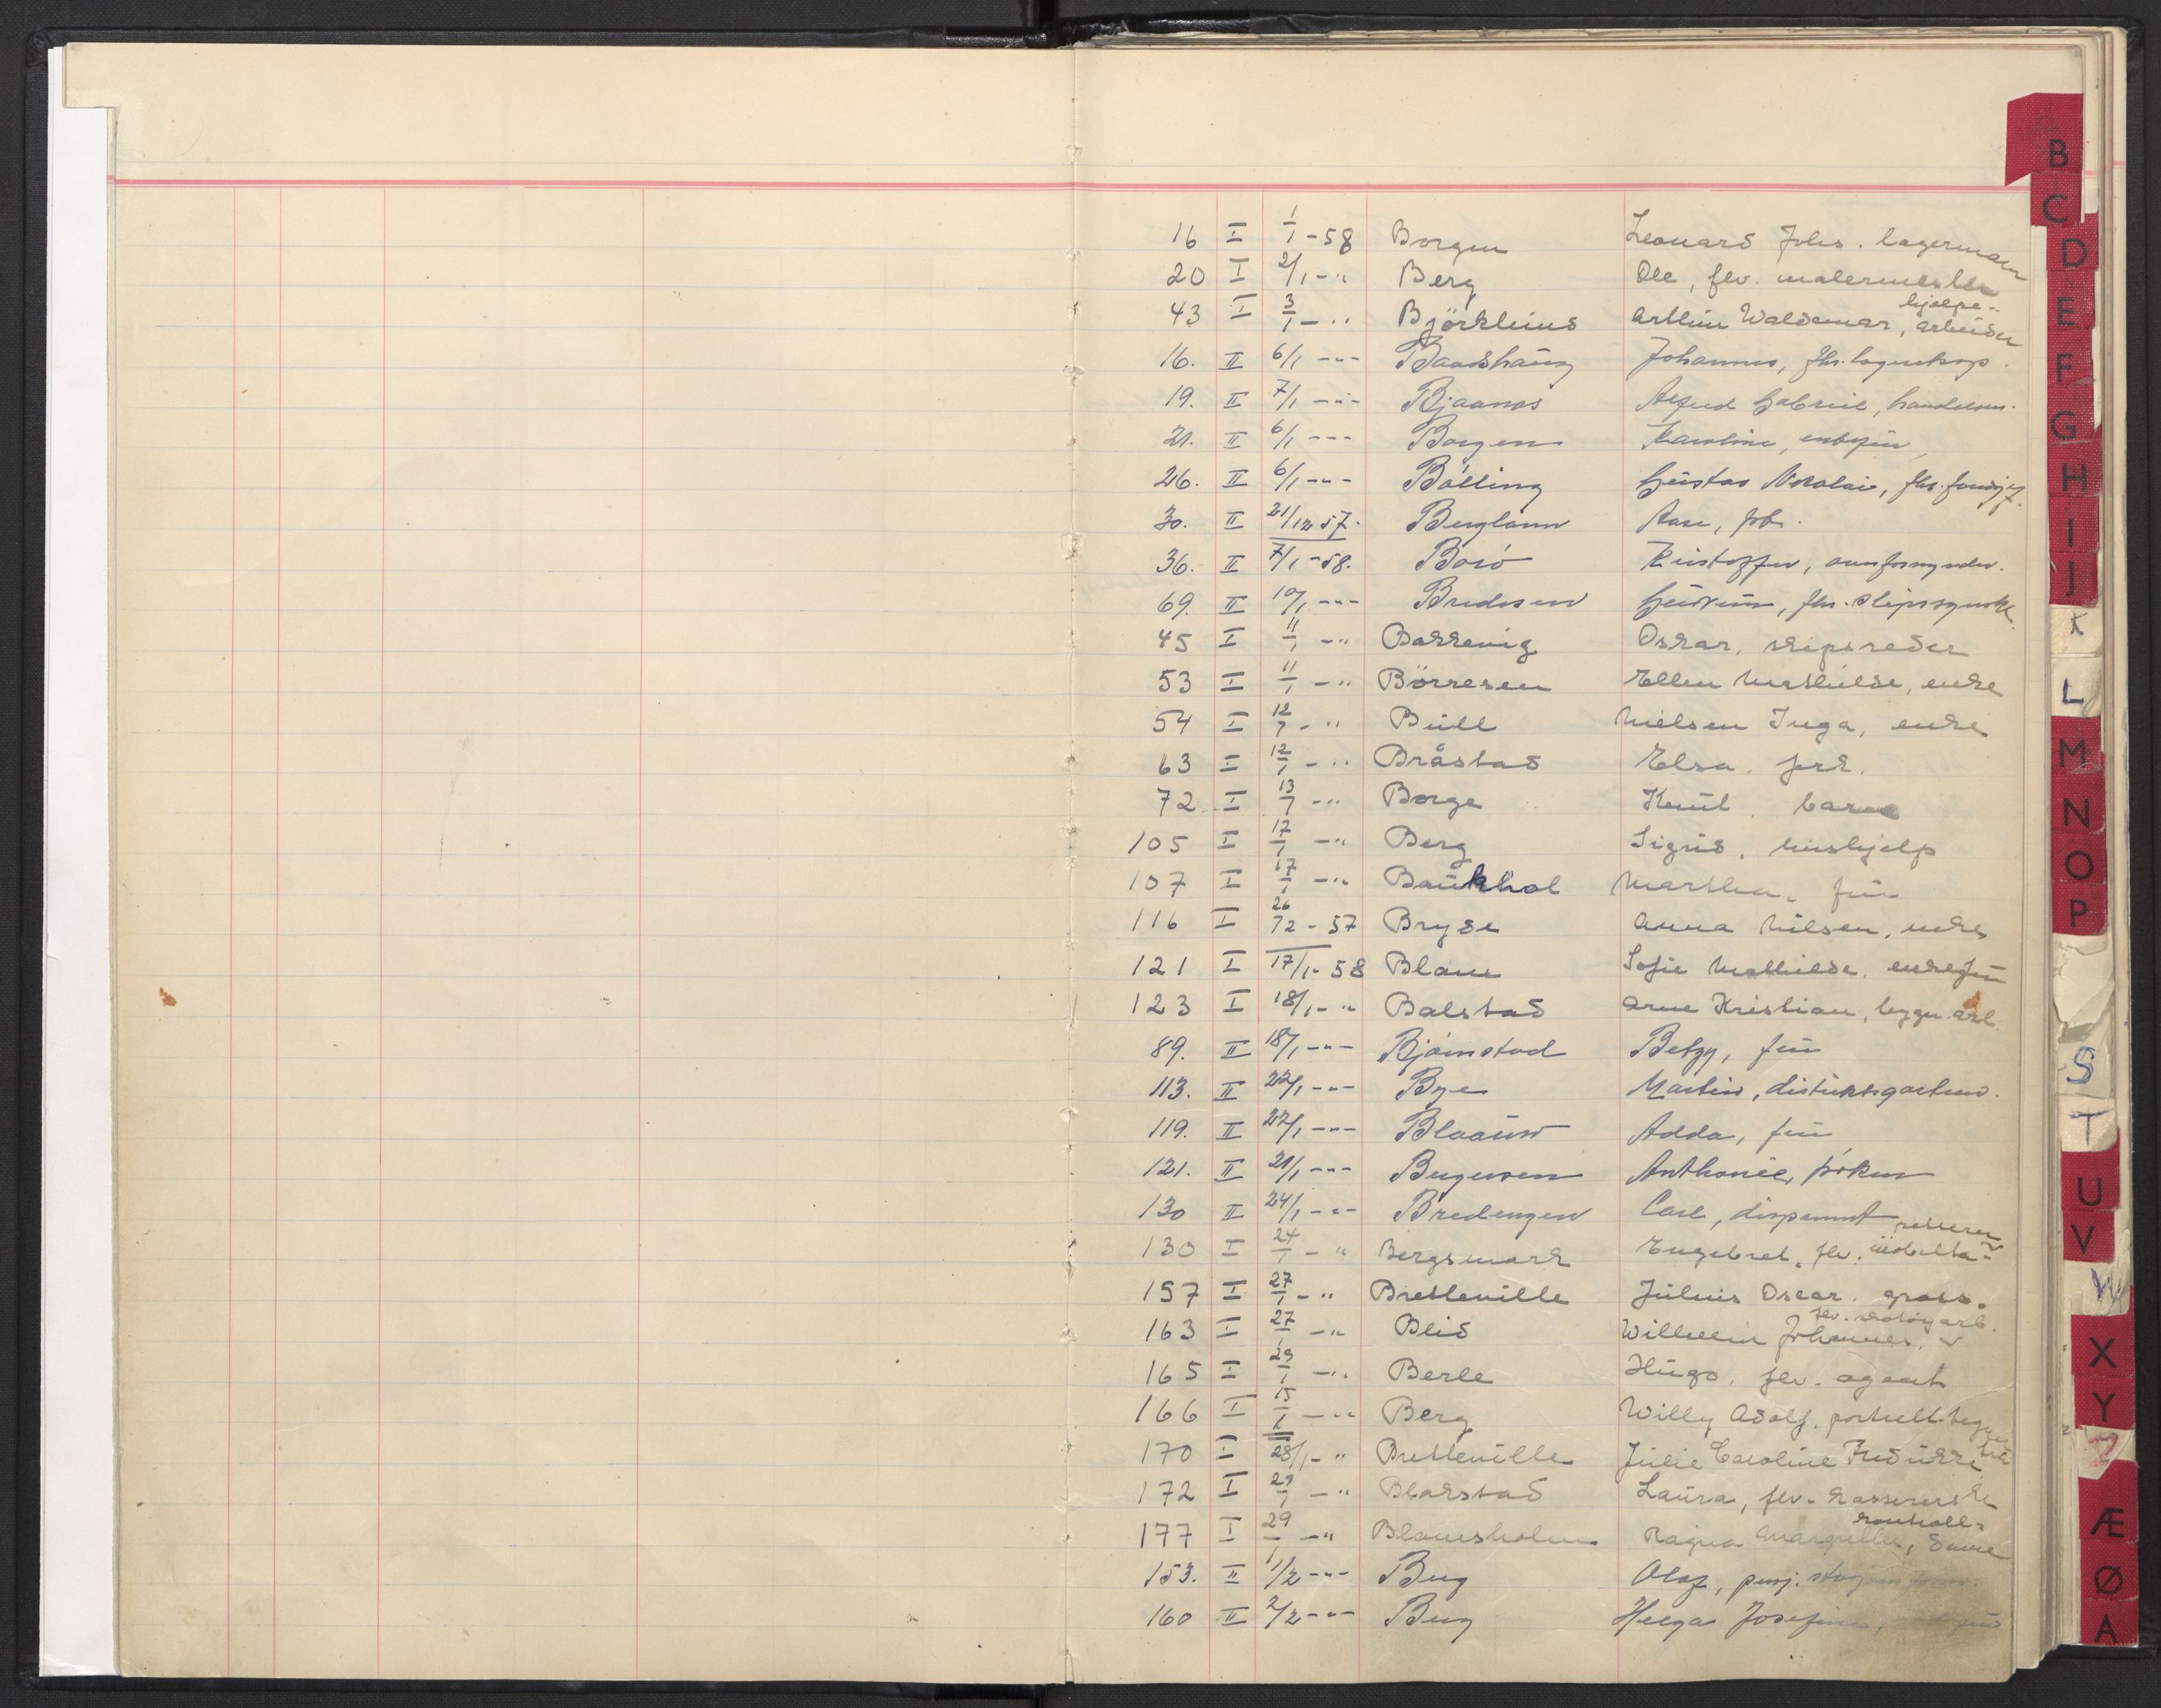 16 I 1/1-58 Borgen Leonard Johs. lagermann
20 I 2/1-" Berg Ole, flv. malermester
hjelpe-
43 I 3/1-" Björklius Arthur Waldemar, arbeider
16. II 6/1-"- Baadshaug Johannes, fhv.
19. II 7/1-"- Bjaanes Alfred Gabriel, handelsm.
21. II 6/1-"- Borgen Karoline, enkefru
26. II 6/1-"- Bölling Gustav Nikolai, fhv.
30. II 21/12 57. Berglann Aase, frk.
36. II 7/1-58. Borö Kristoffer,
69. II 10/1-"- Bredesen Gudrun, fhv.
45 I 11/1-" Bakkevig Oskar, skipsreder
53 I 11/1-" Börresen Ellen Mathilde, enke
54 I 12/1-" Bull Nielsen Inga, enke
63 I 12/1-" Bråstad Elsa, frk.
72 I 13/1-" Borge Knut, barn
105 I 17/1-" Berg Sigrid, hushjelp
107 I 17/1-" Baukhol Martha, fru
116 I 26/12-57 Bryde Anna Nilsen, enke
121 I 17/1-58 Blom Sofie Mathilde, enkefru
123 I 18/1-" Balstad Arne Kristian, bygn.arb.
89. II 18/1-"- Björnstad Betzy, fru
113. II 22/1-"- Bye Martin, distriktsgartner.
119. II 22/1-"- Blaauw Adda, fru
121. II 21/1-"- Bergersen Anthonie, fröken
130 II 24/1-"- Bredengen Carl, disponent
130 I 24/1-" Bergsmark Engebret, flv.
157 I 27/1-" Bretteville Julius Oscar, gross.
flv. skotöyarb.
163 I 27/1-" Bleid Wilhelm Johannes,
165 I 29/1-" Berle Hugo, flv. agent
166 I 15/1-" Berg Willy Adolf,
170 I 28/1-" Bretteville Julie Caroline Fredrikke
172 I 29/1-" Blakstad Laura, flv. kassererske
kontor-
177 I 29/1-" Blomsholm Ragna Margrethe, dame
153. II 1/2-"- Berg Olaf, pensj.
160 II 2/2-"- Berg Helga Josefine,
B
C
D
E
F
G
H
I
J
K
L
M
N
O
P
S
T
U
V
W
X
Y
Z
Æ
Ø
A